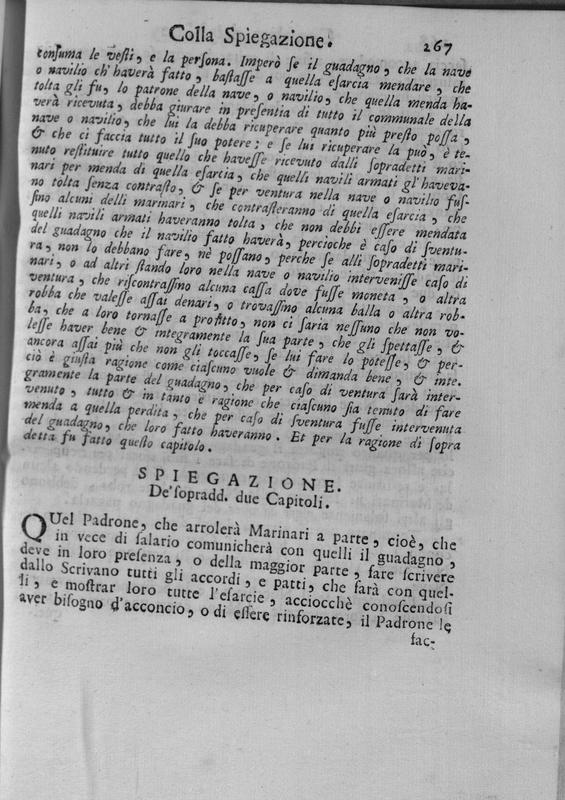 Colla Spiegazione. 267
conſuma le veſti, e la perſona. Imperò ſe il guadagno, che la nave
o navilio ch' haverà fatto, baſtaſſe a quella eſarcia mendare, che
tolta gli fu, lo patrone della nave, o navilio, che quella menda ha-
verà ricevuta, debba giurare in preſentia di tutto il communale della
nave o navilio, che lui la debba ricuperare quanto più preſto poſſa,
& che ci faccia tutto il ſuo potere; e ſe lui ricuperare la può, è te-
nuto reſtituire tutto quello che haveſſe ricevuto dalli ſopradetti mari-
nari per menda di quella eſarcia, che quelli navili armati gl' haveva-
no tolta ſenza contraſto, & ſe per ventura nella nave o navilio fuſ-
ſino alcuni delli marinari, che contraſteranno di quella eſarcia, che
quelli navili armati haveranno tolta, che non debbi eſſere mendata
del guadagno che il navilio fatto haverà, percioche è caſo di ſventu-
ra, non lo debbano fare, nè poſſano, perche ſe alli ſopradetti mari-
nari, o ad altri ſtando loro nella nave o navilio interveniſſe caſo di
ventura, che riſcontraſſino alcuna caſſa dove fuſſe moneta, o altra
robba che valeſſe aſſai denari, o trovaſſino alcuna balla o altra rob-
ba, che a loro tornaſſe a profitto, non ci ſaria neſſuno che non vo-
leſſe haver bene & integramente la ſua parte, che gli ſpettaſſe, &
ancora aſſai più che non gli toccaſſe, ſe lui fare lo poteſſe, & per-
ciò è giuſta ragione come ciaſcuno vuole & dimanda bene, & inte-
gramente la parte del guadagno, che per caſo di ventura ſarà inter-
venuto, tutto & in tanto è ragione che ciaſcuno ſia tenuto di fare
menda a quella perdita, che per caſo di ſventura fuſſe intervenuta
del guadagno, che loro fatto haveranno. Et per la ragione di ſopra
detta fu fatto queſto capitolo.
SPIEGAZIONE.
De'ſopradd. due Capitoli.
QUel Padrone, che arrolerà Marinari a parte, cioè, che
in vece di ſalario comunicherà con quelli il guadagno,
deve in loro preſenza, o della maggior parte, fare ſcrivere
dallo Scrivano tutti gli accordi, e patti, che farà con quel-
li, e moſtrar loro tutte l'eſarcie, acciocchè conoſcendoſi
aver biſogno d'acconcio, o di eſſere rinforzate, il Padrone le
fac-